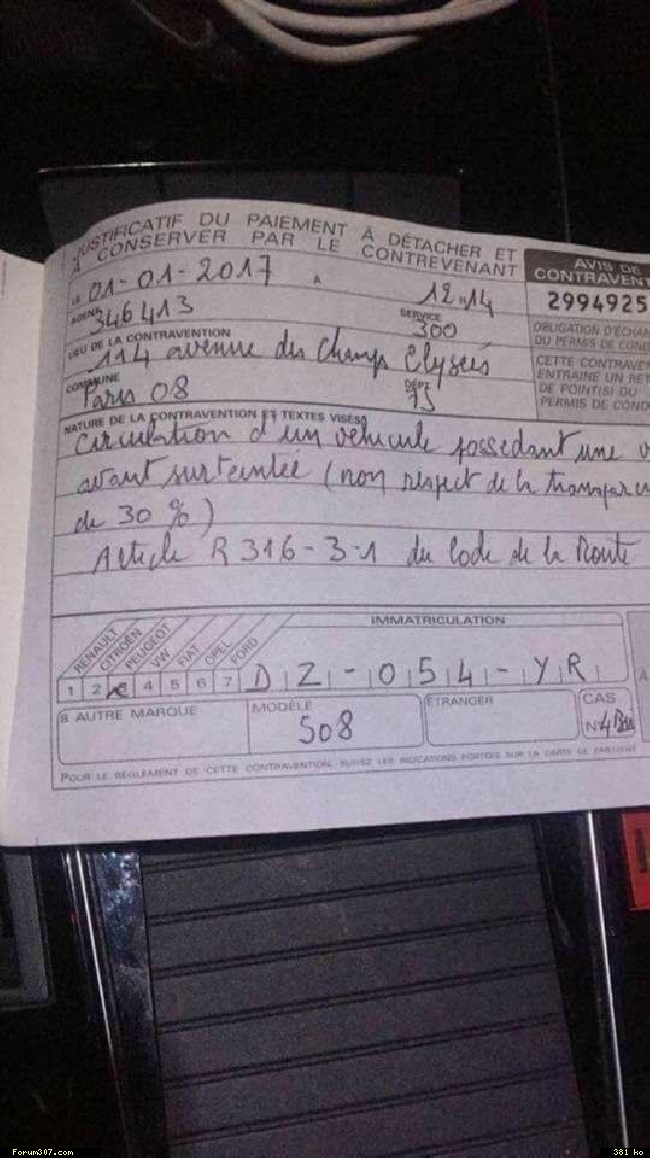 JUSTIFICATIF DU PAIEMENT À DÉTACHER ET
À CONSERVER PAR LE CONTREVENANT
LE 01-01-2017 A 12 14
AGENT 346413 SERVICE 300
LIEU DE LA CONTRAVENTION
114 avenue des Champs Elysées
COMMUNE Paris 08 DÉPT 75
AVIS DE
CONTRAVENT
2994925
OBLIGATION D'ÉCHAN
DU PERMIS DE COND
CETTE CONTRAVEN
ENTRAINE UN RET
DE POINT(S) DU
PERMIS DE COND
NATURE DE LA CONTRAVENTION ET TEXTES VISÉS
circulation d'un véhicule possedant une v
avant surteintée (non respect de la transparen
de 30 %)
Article R 316-3-1 du Code de la Route
RENAULT
CITROËN
PEUGEOT
VW
FIAT
OPEL
FORD
IMMATRICULATION
1 2 4 5 6 7 DZ-054-YR
8 AUTRE MARQUE
MODÈLE
508
ÉTRANGER
CAS
N° 4 Bis
POUR LE RÈGLEMENT DE CETTE CONTRAVENTION, SUIVEZ LES INDICATIONS PORTÉES SUR LA CARTE DE PAIEMENT
Forum307.com 381 ko